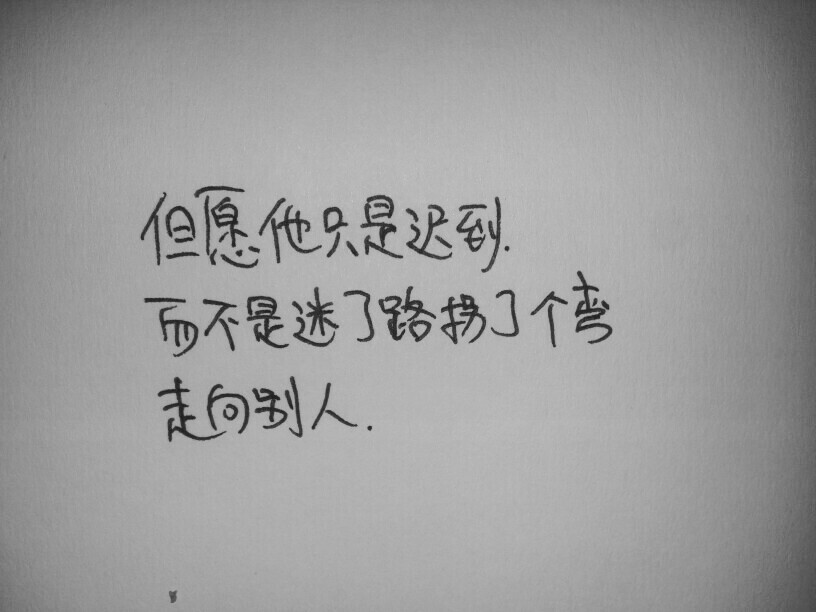 但愿他只是迟到.
而不是迷了路拐了个弯
走向别人.